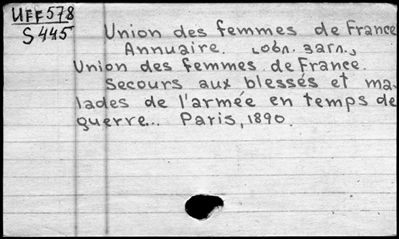 UFF578
S445
Union des femmes de France
Annuaire. [обл. загл.]
Union des femmes de France.
Secours aux blessés et ma-
lades de l'armée en temps de
guerre... Paris, 1890.